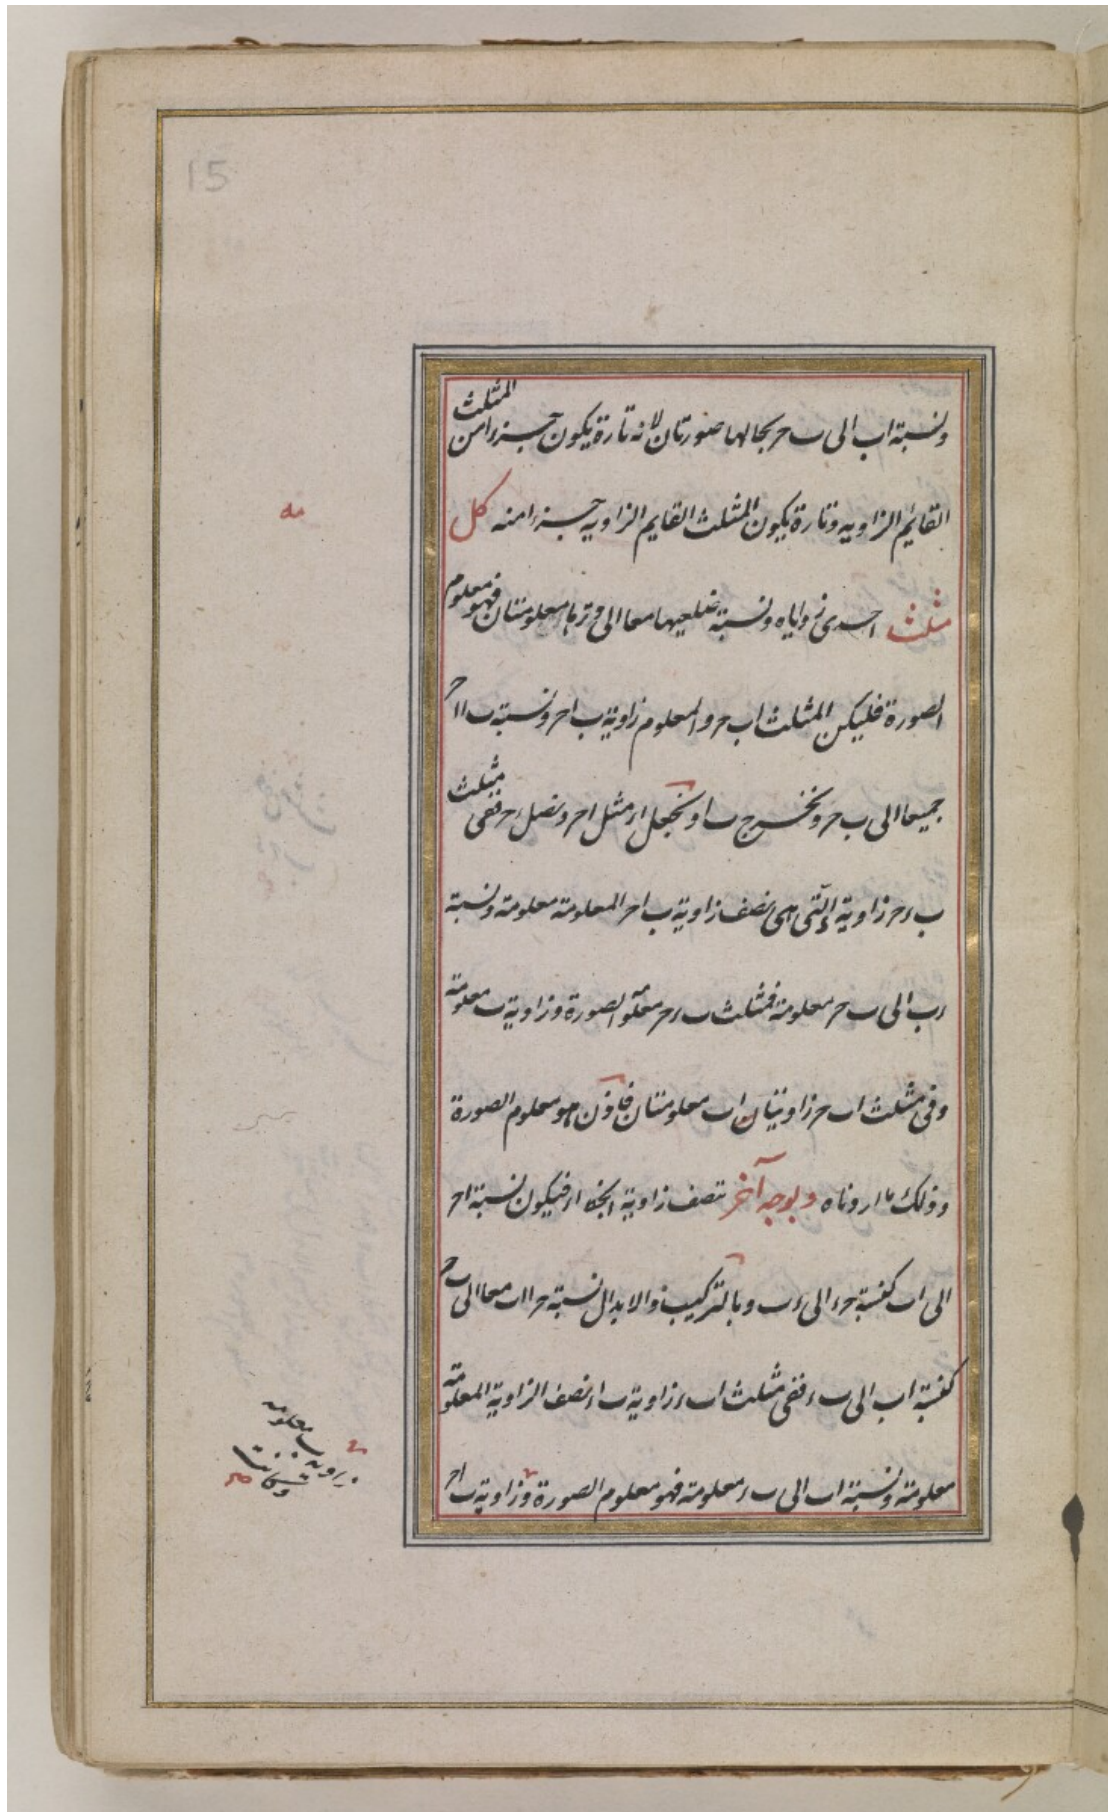 15
ونسبة اب الى ب حر بحالها صورتان لانه تارة يكون جزءا من المثلث
القايم الزاويه وتارة يكون المثلث القايم الزاويه جزءا منه كل
مه
مثلث احدى زواياه ونسبة ضلعيها معا الى وترها معلومتان فهو معلوم
الصورة فليكن المثلث اب حر والمعلوم زاوية ب احر ونسبة ب ا احر
جميعا الى ب حر ونخرج ب ا ونجعل اء مثل احر ونصل ءحر ففى مثلث
ب ءحر زاوية ء التى هى نصف زاوية ب احر المعلومة معلومة ونسبة
ءب الى ب حر معلومة فمثلث ب ءحر معلوم الصورة وزاوية ب معلومة
وفى مثلث اب حر زاويتان اب معلومتان فاذن هو معلوم الصورة
وذلك ما اردناه وبوجه آخر ننصف زاوية ا بخط اء فيكون نسبة احر
الى اب كنسبة حرء الى ءب وبالتركيب والابدال نسبة حرا اب معا الى ب حر
كنسبة اب الى ب ء ففى مثلث اب ء زاوية ب اء نصف الزاوية المعلومة
معلومة ونسبة اب الى ب ء معلومة فهو معلوم الصورة وزاوية ب احر
زاوية ب معلومه
وكانت
صح